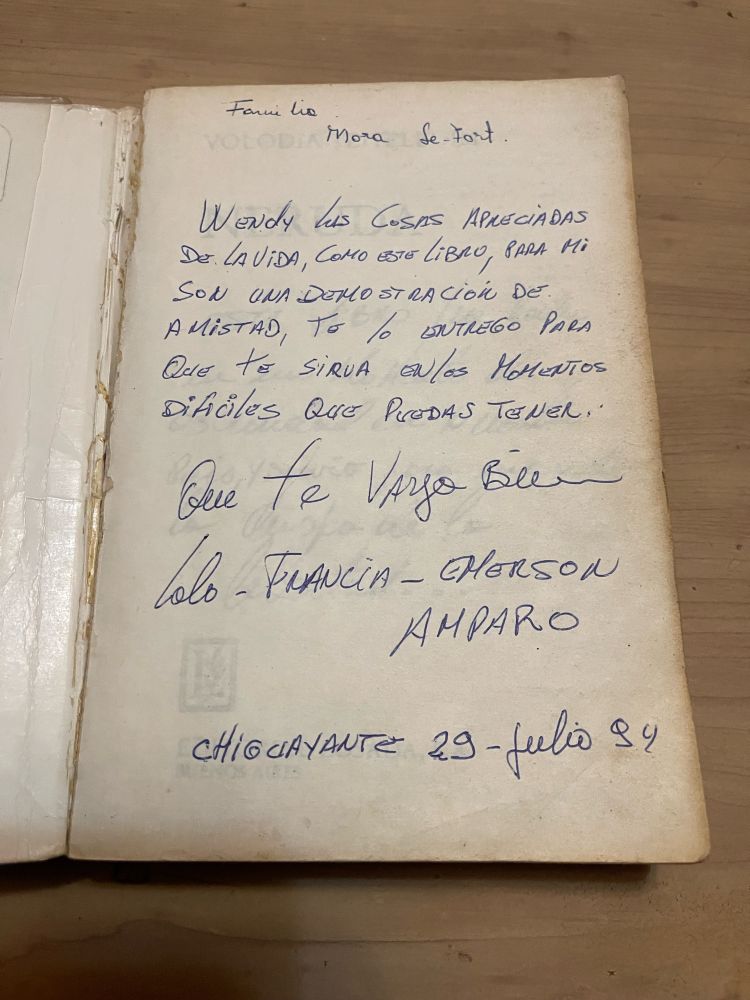 Familia
Mora Le-Fort.
VOLODIA
NERUDA
WENDY LAS COSAS APRECIADAS
DE LA VIDA, COMO ESTE LIBRO, PARA MI
SON UNA DEMOSTRACIÓN DE
AMISTAD, TE lo ENTREGO PARA
QUE TE SIRVA EN los MOMENTOS
DIFICILES QUE PUEDAS TENER.
Que te Vaya Bien
Lolo - FRANCIA - EMERSON
AMPARO
CHIGUAYANTE 29 - Julio 94
BUENOS AIRES